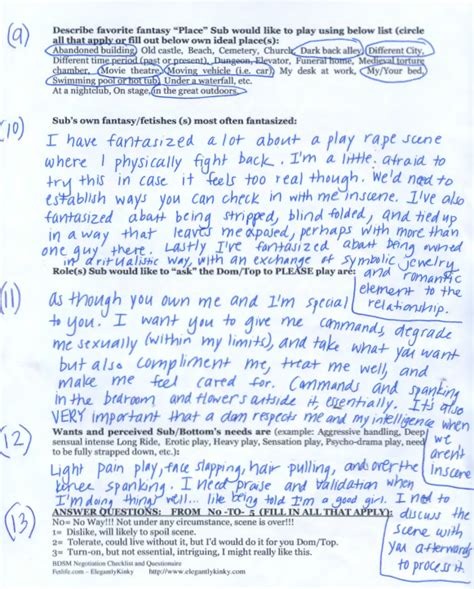 (9)
Describe favorite fantasy "Place" Sub would like to play using below list (circle
all that apply or fill out below own ideal place(s):
Abandoned building, Old castle, Beach, Cemetery, Church, Dark back alley, Different City,
Different time period (past or present), Dungeon, Elevator, Funeral home, Medieval torture
chamber, Movie theatre, Moving vehicle (i.e. car), My desk at work, My/Your bed,
Swimming pool or hot tub, Under a waterfall, etc.
At a nightclub, On stage, in the great outdoors,
(10)
Sub's own fantasy/fetishes (s) most often fantasized:
I have fantasized a lot about a play rape scene
where I physically fight back. I'm a little afraid to
try this in case it feels too real though. We'd need to
establish ways you can check in with me inscene. I've also
fantasized about being stripped, blind folded, and tied up
in a way that leaves me exposed, perhaps with more than
one guy there. Lastly I've fantasized about being owned
in a ritualistic way, with an exchange of symbolic jewelry
and romantic
element to the
relationship.
Role(s) Sub would like to "ask" the Dom/Top to PLEASE play are:
(11)
as though you own me and I'm special
to you. I want you to give me commands, degrade
me sexually (within my limits), and take what you want
but also compliment me, treat me well, and
make me feel cared for. Commands and spanking
in the bedroom and flowers outside it, essentially. It's also
VERY important that a dom respects me and my intelligence when
we
aren't
inscene
(12)
Wants and perceived Sub/Bottom's needs are (example: Aggressive handling, Deep
sensual intense Long Ride, Erotic play, Heavy play, Sensation play, Psycho-drama play, need
to be fully strapped down, etc.):
Light pain play, face slapping, hair pulling, and over the
knee spanking. I need praise and validation when
I'm doing things well... like being told I'm a good girl. I need to
discuss the
scene with
you afterwards
to process it.
(13)
ANSWER QUESTIONS: FROM No -TO- 5 (FILL IN ALL THAT APPLY):
No= No Way!!! Not under any circumstance, scene is over!!!
1= Dislike, will likely to spoil scene.
2= Tolerate, could live without it, but I'd would do it for you Dom/Top.
3= Turn-on, but not essential, intriguing, I might really like this.
BDSM Negotiation Checklist and Questionaire
Fetlife.com – ElegantlyKinky http://www.elegantlykinky.com